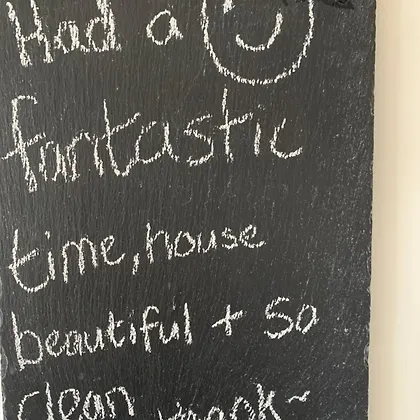 Had a
fantastic
time, house
beautiful + so
clean